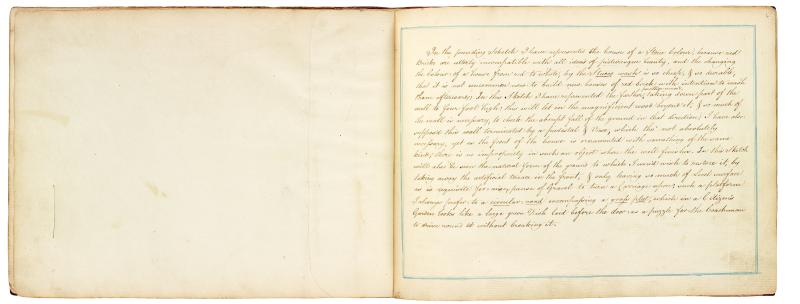 In the preceding Sketch I have represented the house of a Stone Colour, because red
Bricks are utterly incompatible with all ideas of picturesque beauty, and the changing
the Colour of a house from red to white, by the Stucco wash is so cheap, & so durable,
that it is not uncommon now to build new houses of red brick with intention to wash
them afterwards; In this Sketch I have represented the taking down part of the
wall to four foot high; this will let in the magnificent wood beyond it, & so much of
the wall is necessary, to check the abrupt fall of the ground in that direction; I have also
supposed this wall terminated by a pedestal & Vase, which tho' not absolutely
necessary, yet as the front of the house is ornamented with something of the same
kind, there is no impropriety in such an object where the wall finishes. In this Sketch
will also be seen the natural form of the ground to which I would wish to restore it, by
taking away the artificial terrace in the front, & only leaving so much of level surface
as is requisite for a space of Gravel to turn a Carriage upon; such a platform
I always prefer to a circular road encompassing a grass plot, which in a Citizen's
Garden looks like a large green Dish laid before the door as a puzzle for the Coachman
to drive round it without breaking it.